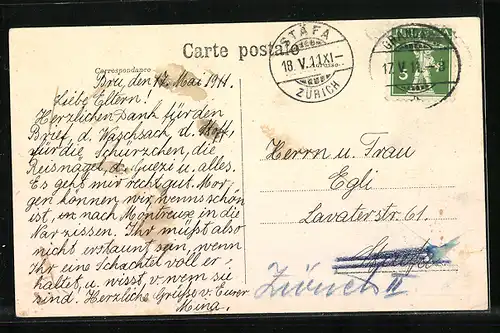 Carte postale
Correspondance
STÄFA
18.V.11.XI-
ZÜRICH
17.V.11
5
Brei, den 17. Mai 1911.
Liebe Eltern!
Herzlichen Dank für den
Brief, d. Waschsach, d. Stoff
für die Schürzchen, die
Reisnägel, d. Guezi u. alles.
Es geht mir recht gut. Mor-
gen können wir, wenns schön
ist, in nach Montreux in die
Narzissen. Ihr müßt also
nicht erstaunt sein, wenn
Ihr eine Schachtel voll er-
haltet, u. wisst, v. wem sie
sind. Herzliche Grüße v. Eurer
Mina.
Herrn u. Frau
Egli
Lavaterstr. 61.
Zürich II